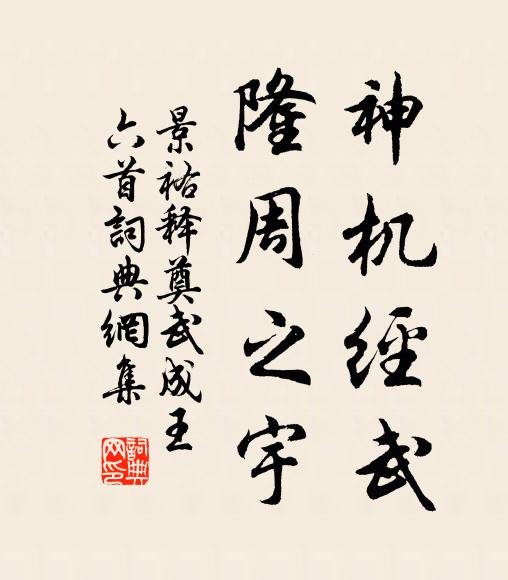 神机經武
隆周之宇
景祐释奠武成王
六首詞典網集
詞典
网印